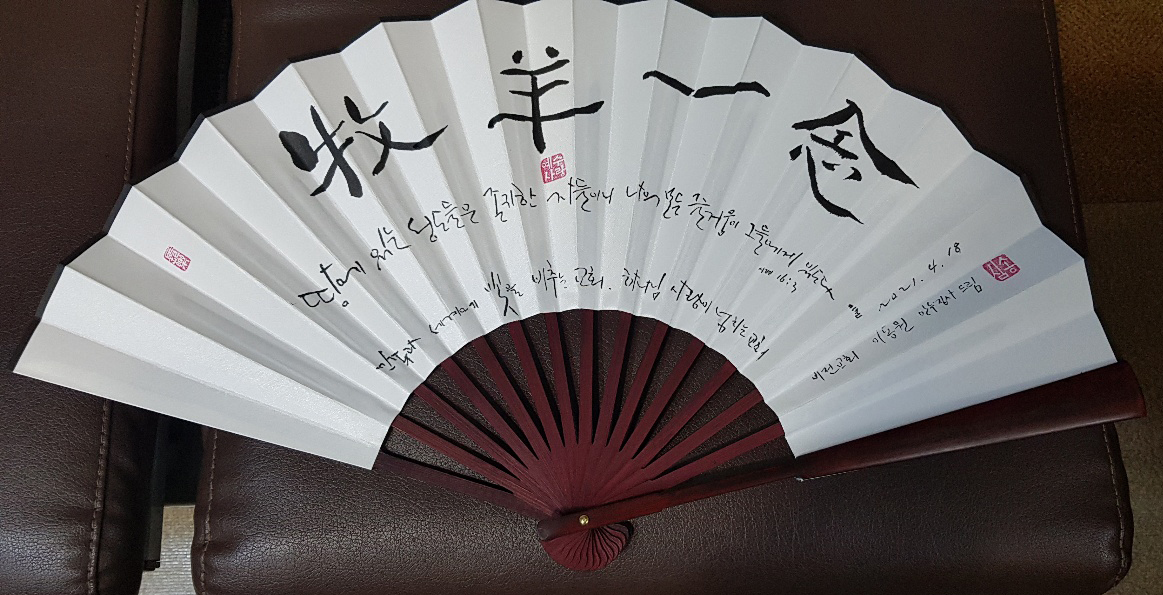 牧羊一念
예수
사랑
땅에 있는 성도들은 존귀한 자들이니 나의 모든 즐거움이 그들에게 있도다
시편 16:3
세계에 빛을 비추는 교회. 하나님 사랑이 넘치는 교회
2021. 4. 18
비전교회 이동원 안수집사 드림